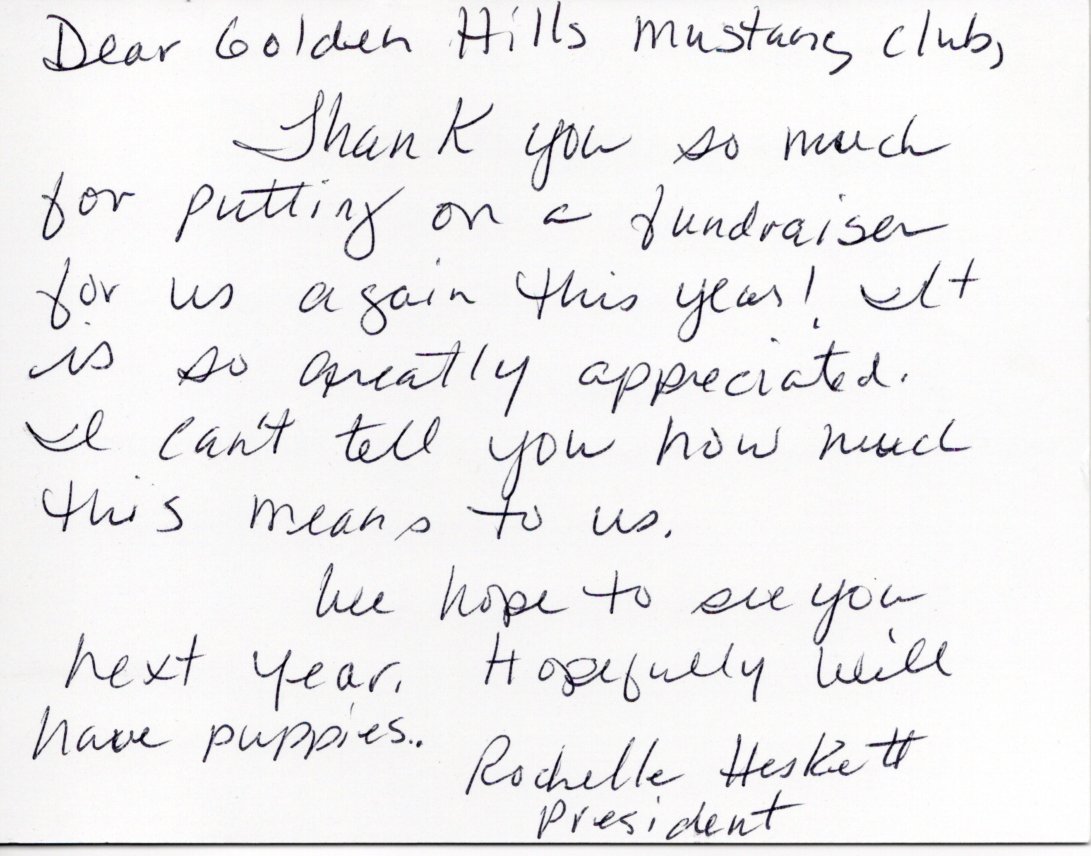 Dear Golden Hills Mustang Club,
Thank you so much
for putting on a fundraiser
for us again this year! It
is so greatly appreciated.
I can't tell you how much
this means to us.
We hope to see you
next year. Hopefully will
have puppies..
Rochelle Heskett
President